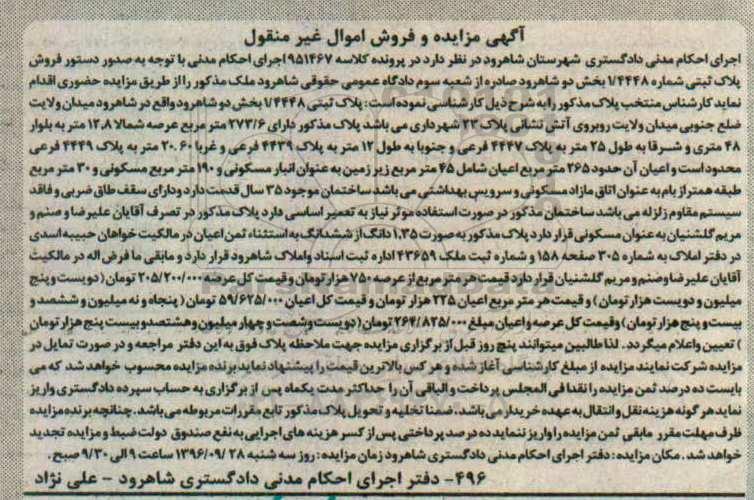 آگهی مزایده و فروش اموال غیر منقول
اجرای احکام مدنی دادگستری شهرستان شاهرود در نظر دارد در پرونده کلاسه ۹۵۱۴۶۷ اجرای احکام مدنی با توجه به صدور دستور فروش
پلاک ثبتی شماره ۱/۴۴۴۸ بخش دو شاهرود صادره از شعبه سوم دادگاه عمومی حقوقی شاهرود ملک مذکور را از طریق مزایده حضوری اقدام
نماید کارشناس منتخب پلاک مذکور را به شرح ذیل کارشناسی نموده است: پلاک ثبتی ۱/۴۴۴۸ بخش دو شاهرود واقع در شاهرود میدان ولایت
ضلع جنوبی میدان ولایت روبروی آتش نشانی پلاک ۲۳ شهرداری می باشد پلاک مذکور دارای ۲۷۳/۶ متر مربع عرصه شمالا ۱۲.۸ متر به بلوار
۴۸ متری و شرقا به طول ۲۵ متر به پلاک ۴۴۴۷ فرعی و جنوبا به طول ۱۲ متر به پلاک ۴۴۳۹ فرعی و غربا ۲۰.۶۰ متر به پلاک ۴۴۴۹ فرعی
محدود است و اعیان آن حدود ۲۶۵ متر مربع اعیان شامل ۴۵ متر مربع زیر زمین به عنوان انبار مسکونی و ۱۹۰ متر مربع مسکونی و ۳۰ متر مربع
طبقه همتراز بام به عنوان اتاق مازاد مسکونی و سرویس بهداشتی می باشد ساختمان موجود ۳۵ سال قدمت دارد و دارای سقف طاق ضربی و فاقد
سیستم مقاوم زلزله می باشد ساختمان مذکور در صورت استفاده موثر نیاز به تعمیر اساسی دارد پلاک مذکور در تصرف آقایان علیرضا و صنم و
مریم گلشنیان به عنوان مسکونی قرار دارد پلاک مذکور به صورت ۱.۳۵ دانگ از ششدانگ به استثناء ثمن اعیان در مالکیت خواهان حبیبه اسدی
در دفتر املاک به شماره ۳۰۵ صفحه ۱۵۸ و شماره ثبت ملک ۴۳۶۵۹ اداره ثبت اسناد و املاک شاهرود قرار دارد و مابقی ما فرض اله در مالکیت
آقایان علیرضا و صنم و مریم گلشنیان قرار دارد قیمت هر متر مربع از عرصه ۷۵۰ هزار تومان و قیمت کل عرصه ۲۰۵/۲۰۰/۰۰۰ تومان (دویست و پنج
میلیون و دویست هزار تومان) و قیمت هر متر مربع اعیان ۲۲۵ هزار تومان و قیمت کل اعیان ۵۹/۶۲۵/۰۰۰ تومان (پنجاه و نه میلیون و ششصد و
بیست و پنج هزار تومان) و قیمت کل عرصه و اعیان مبلغ ۲۶۴/۸۲۵/۰۰۰ تومان (دویست و شصت و چهار میلیون و هشتصد و بیست پنج هزار تومان
) تعیین و اعلام میگردد. لذا طالبین میتوانند پنج روز قبل از برگزاری مزایده جهت ملاحظه پلاک فوق به این دفتر مراجعه و در صورت تمایل در
مزایده شرکت نمایند مزایده از مبلغ کارشناسی آغاز شده و هر کس بالاترین قیمت را پیشنهاد نماید برنده مزایده محسوب خواهد شد که می
بایست ده درصد ثمن مزایده را نقدا فی المجلس پرداخت و الباقی آن را حداکثر مدت یکماه پس از برگزاری به حساب سپرده دادگستری واریز
نماید هر گونه هزینه نقل و انتقال به عهده خریدار می باشد. ضمنا تخلیه و تحویل پلاک مذکور تابع مقررات مربوطه می باشد. چنانچه برنده مزایده
ظرف مهلت مقرر مابقی ثمن مزایده را واریز ننماید ده درصد پرداختی پس از کسر هزینه های اجرایی به نفع صندوق دولت ضبط و مزایده تجدید
خواهد شد. مکان مزایده: دفتر اجرای احکام مدنی دادگستری شاهرود زمان مزایده: روز سه شنبه ۱۳۹۶/۰۹/۲۸ ساعت ۹ الی ۹/۳۰ صبح.
۴۹۶- دفتر اجرای احکام مدنی دادگستری شاهرود - علی نژاد